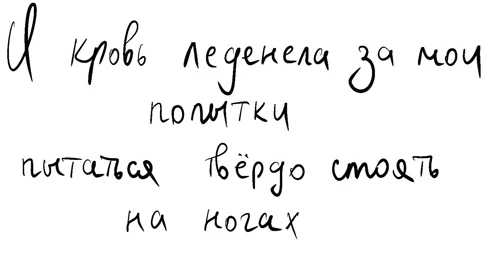 И кровь леденела за мои
попытки
пытаться твёрдо стоять
на ногах